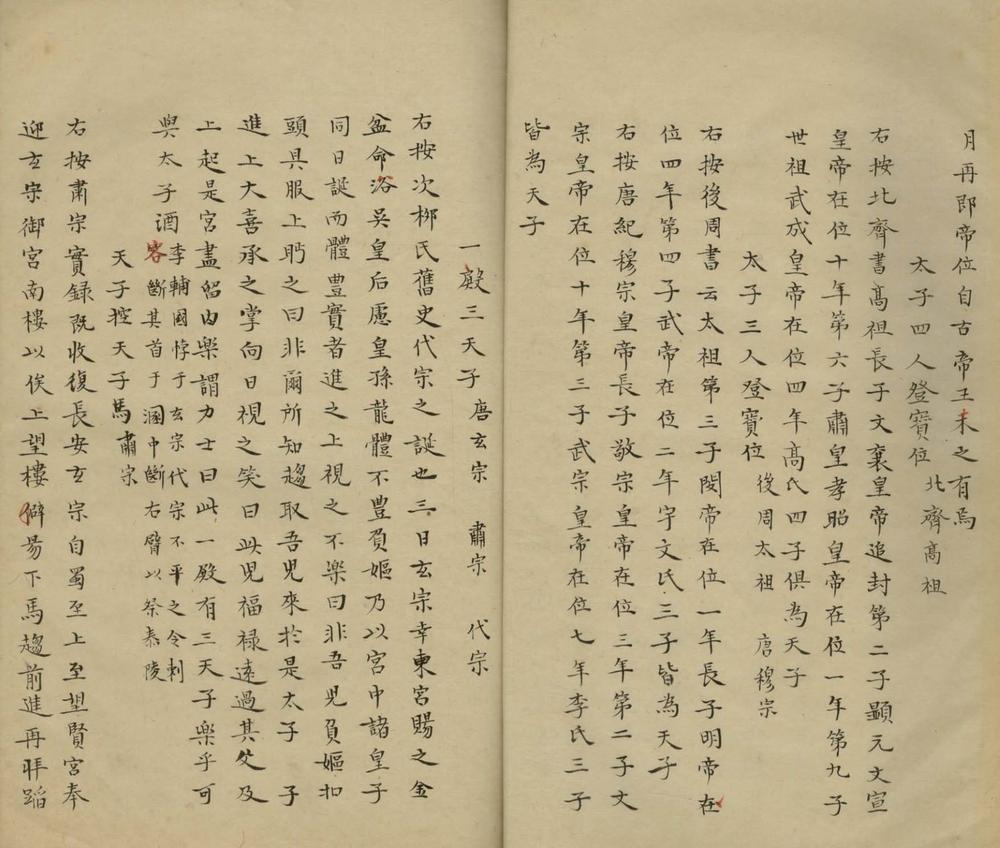 月再即帝位自古帝王未之有焉
太子四人登寶位 北齊高祖
右按北齊書高祖長子文襄皇帝追封第二子顯元文宣
皇帝在位十年第六子肅皇孝昭皇帝在位一年第九子
世祖武成皇帝在位四年高氏四子俱為天子
太子三人登寶位 後周太祖 唐穆宗
右按後周書云太祖第三子閔帝在位一年長子明帝在
位四年第四子武帝在位二年宇文氏三子皆為天子
右按唐紀穆宗皇帝長子敬宗皇帝在位三年第二子文
宗皇帝在位十年第三子武宗皇帝在位七年李氏三子
皆為天子
一殿三天子 唐玄宗 肅宗 代宗
右按次柳氏舊史代宗之誕也三日玄宗幸東宮賜之金
盆命浴吳皇后慮皇孫龍體不豊負嫗乃以宮中諸皇子
同日誕而體豊實者進之上視之不樂曰非吾兒負嫗扣
頭具服上眄之曰非爾所知趨取吾兒來於是太子 子
進上大喜承之掌向日視之笑曰此兒福禄遠過其父及
上起是宮盡留内樂謂力士曰此一殿有三天子樂乎可
與太子酒 李輔國悖于玄宗代宗不平之令刺
客斷其首于溷中斷右臂以祭泰陵
天子控天子馬 肅宗
右按肅宗實録既收復長安玄宗自蜀至上至望賢宮奉
迎玄宗御宮南樓以俟上望樓僻易下馬趨前進再拜蹈